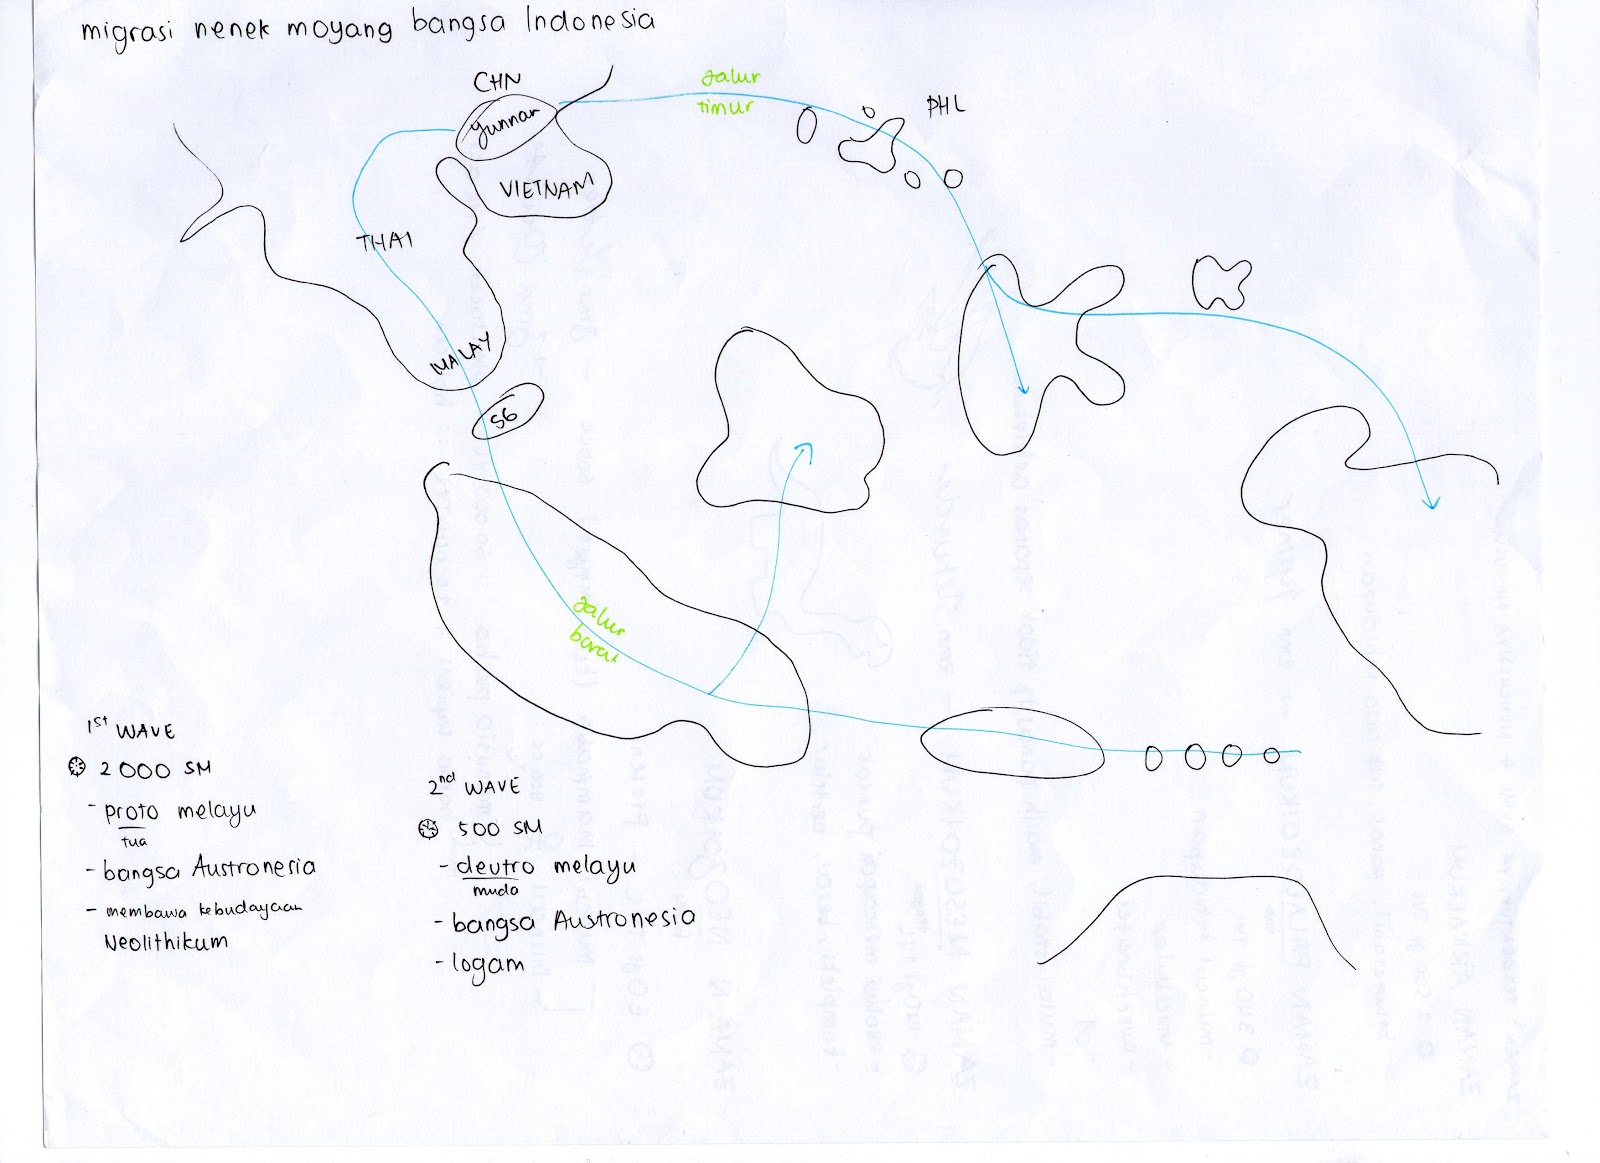 migrasi nenek moyang bangsa Indonesia
CHN
Yunnan
VIETNAM
THAI
MALAY
SG
jalur
timur
PHL
jalur
barat
1st WAVE
2000 SM
- proto melayu
tua
- bangsa Austronesia
- membawa kebudayaan
Neolithikum
2nd WAVE
500 SM
- deutro melayu
muda
- bangsa Austronesia
- logam